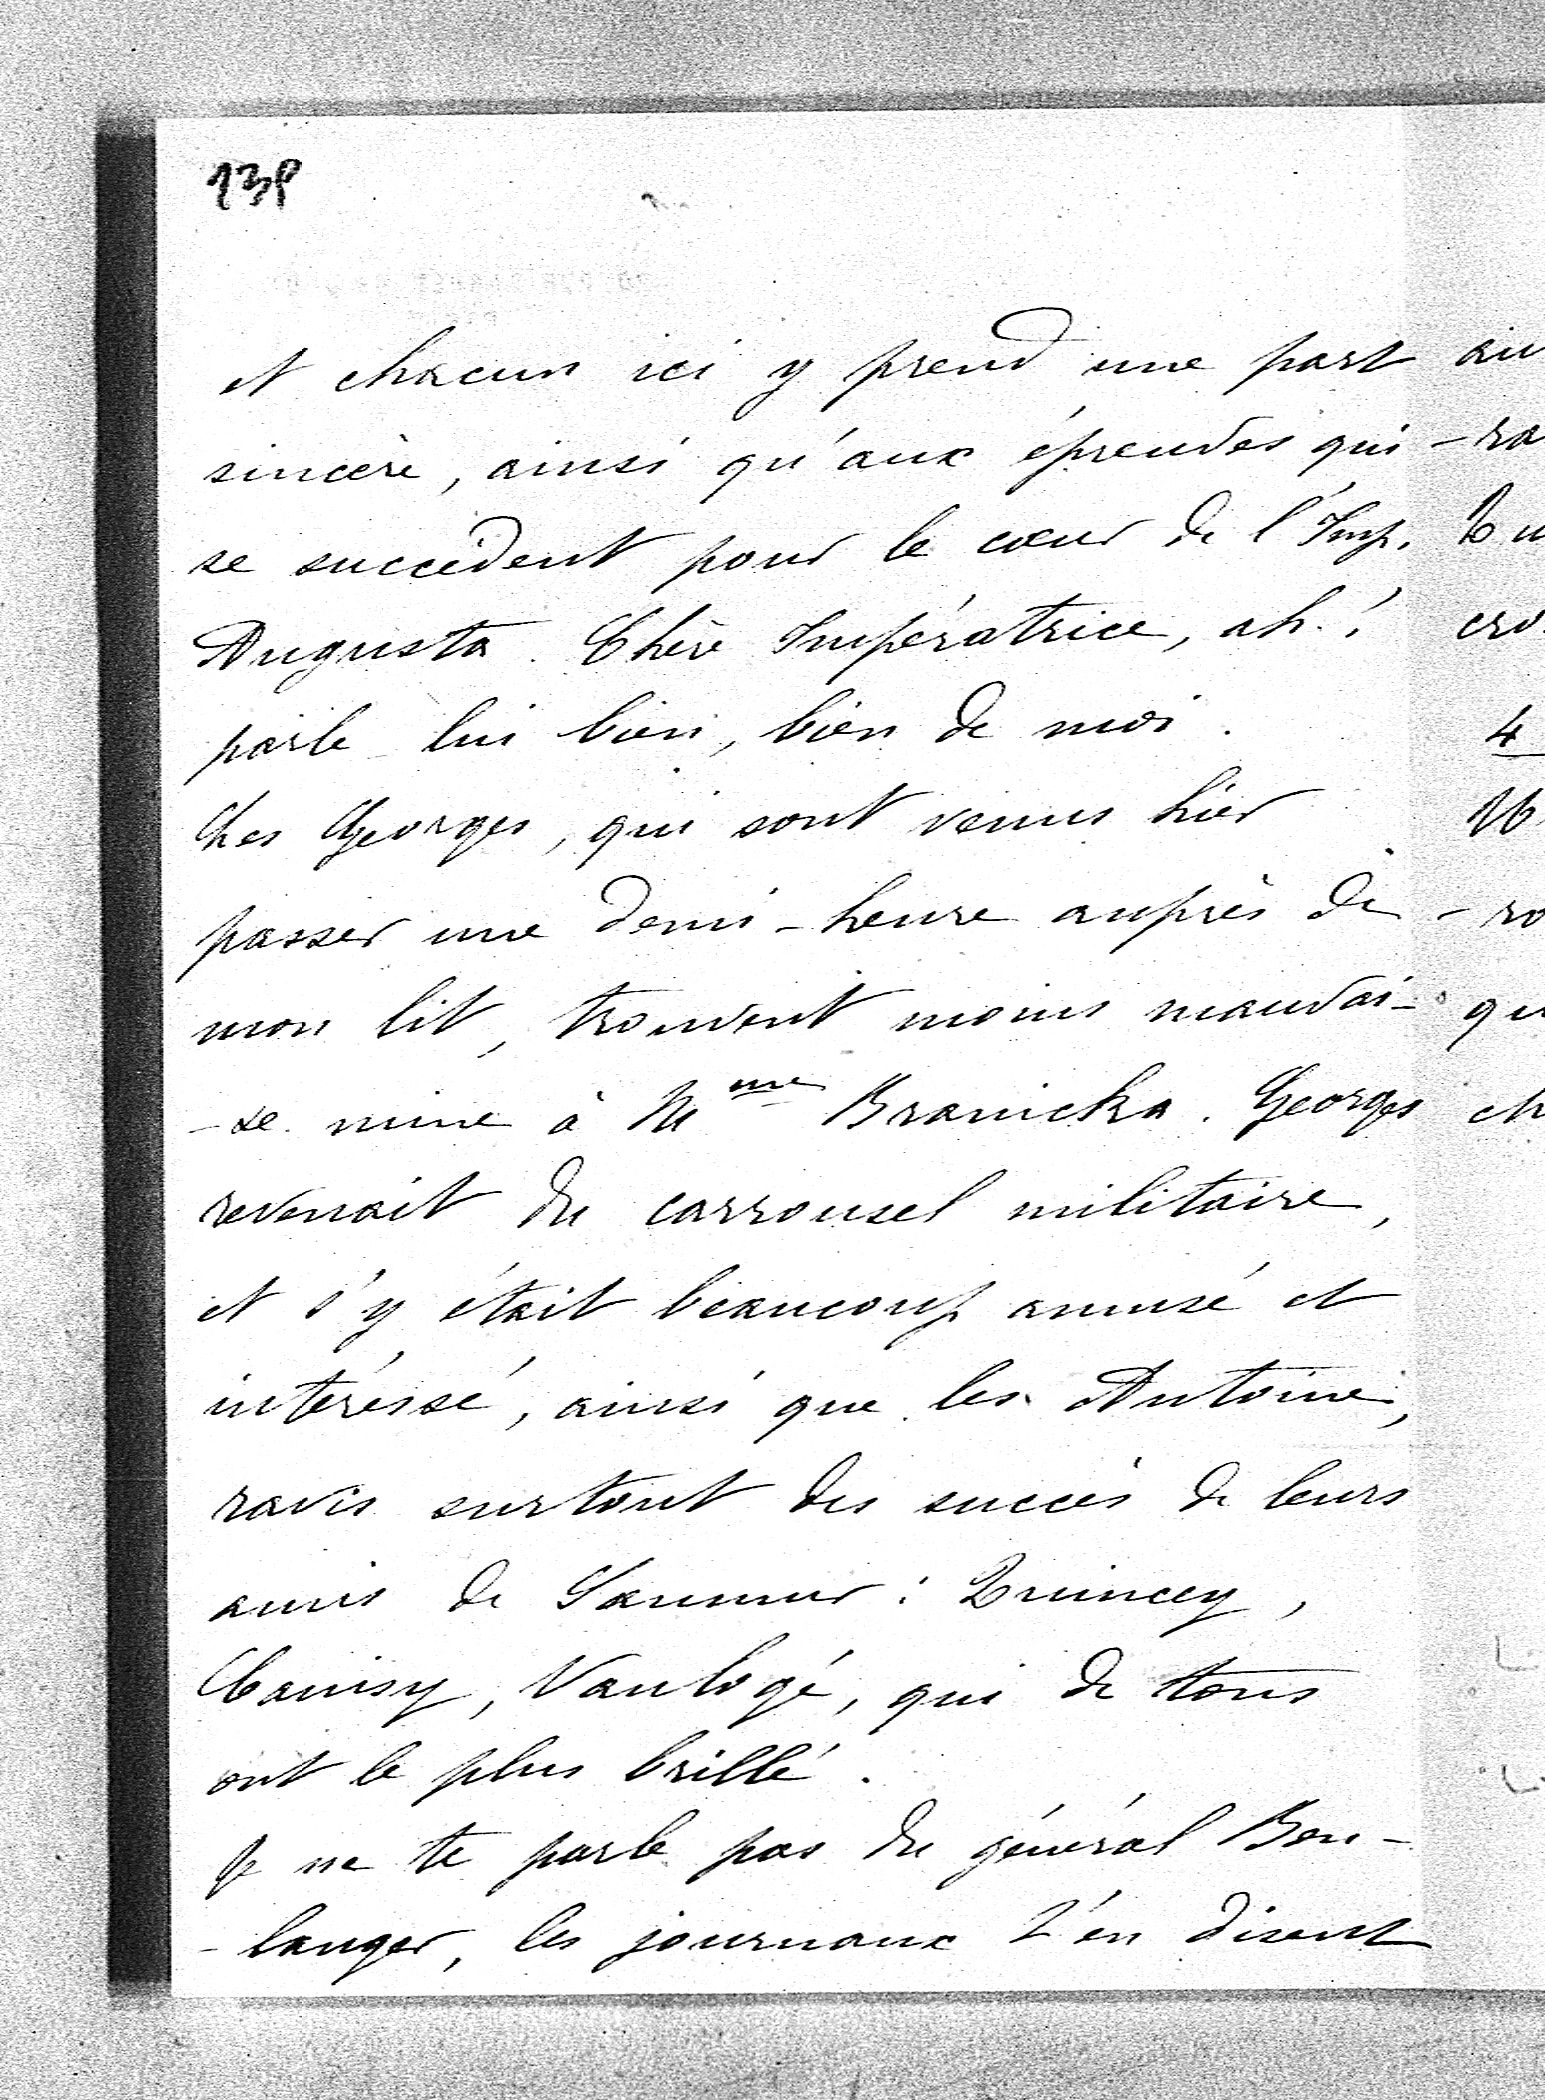 138
et chacun ici y prend une part
sincère, ainsi qu'aux épreuves qui
se succèdent pour le cœur de l'Imp.
Augusta. Chère Impératrice, ah !
parle-lui bien, bien de moi.
Les Georges, qui sont venus hier
passer une demi-heure auprès de
mon lit, trouvent moins mauvai-
-se mine à Mme Branicka. Georges
revenait du carrousel militaire,
et s'y était beaucoup amusé et
intéressé, ainsi que les Antoine,
ravis surtout des succès de leurs
amis de Saumur : Quincey,
Canisy, Vaulogé, qui de tous
ont le plus brillé.
Je ne te parle pas du général Bou-
-langer, les journaux t'en disent